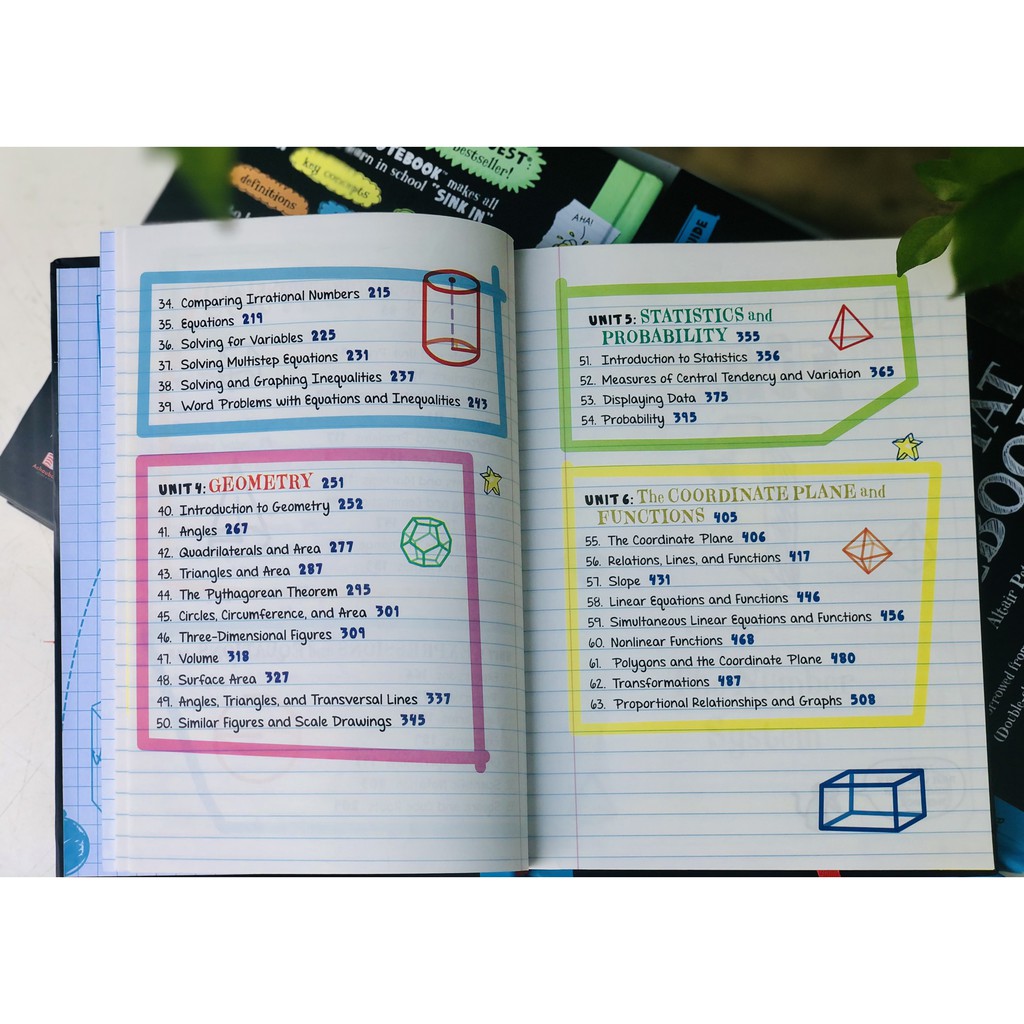 BEST:
bestseller!
key concepts
NOTEBOOK™ makes all
learn in school "SINK IN"
definitions
AHA!
34. Comparing Irrational Numbers 215
35. Equations 219
36. Solving for Variables 225
37. Solving Multistep Equations 231
38. Solving and Graphing Inequalities 237
39. Word Problems with Equations and Inequalities 243
UNIT 4: GEOMETRY 251
40. Introduction to Geometry 252
41. Angles 267
42. Quadrilaterals and Area 277
43. Triangles and Area 287
44. The Pythagorean Theorem 295
45. Circles, Circumference, and Area 301
46. Three-Dimensional Figures 309
47. Volume 318
48. Surface Area 327
49. Angles, Triangles, and Transversal Lines 337
50. Similar Figures and Scale Drawings 345
UNIT 5: STATISTICS and
PROBABILITY 355
51. Introduction to Statistics 356
52. Measures of Central Tendency and Variation 365
53. Displaying Data 375
54. Probability 395
UNIT 6: The COORDINATE PLANE and
FUNCTIONS 405
55. The Coordinate Plane 406
56. Relations, Lines, and Functions 417
57. Slope 431
58. Linear Equations and Functions 446
59. Simultaneous Linear Equations and Functions 456
60. Nonlinear Functions 468
61. Polygons and the Coordinate Plane 480
62. Transformations 487
63. Proportional Relationships and Graphs 508